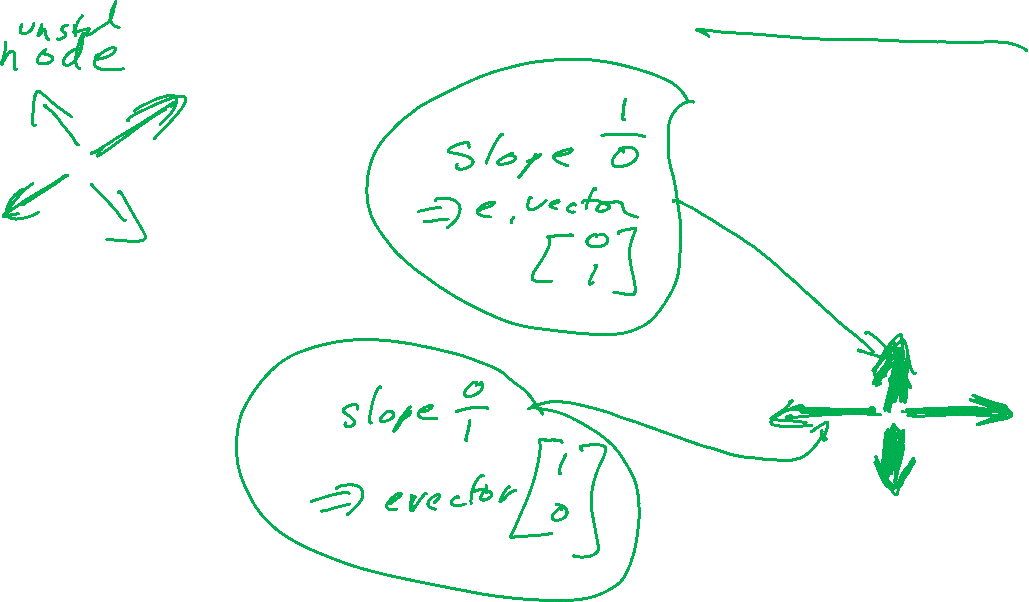 unstbl
node
slope 1/0
⇒ e.vector
[0
1]
slope 0/1
⇒ evector [1
0]